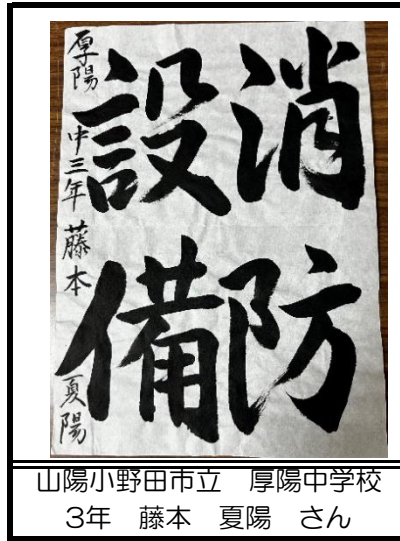 消防
設備
厚陽 中三年 藤本 夏陽
山陽小野田市立　厚陽中学校
3年　藤本　夏陽　さん